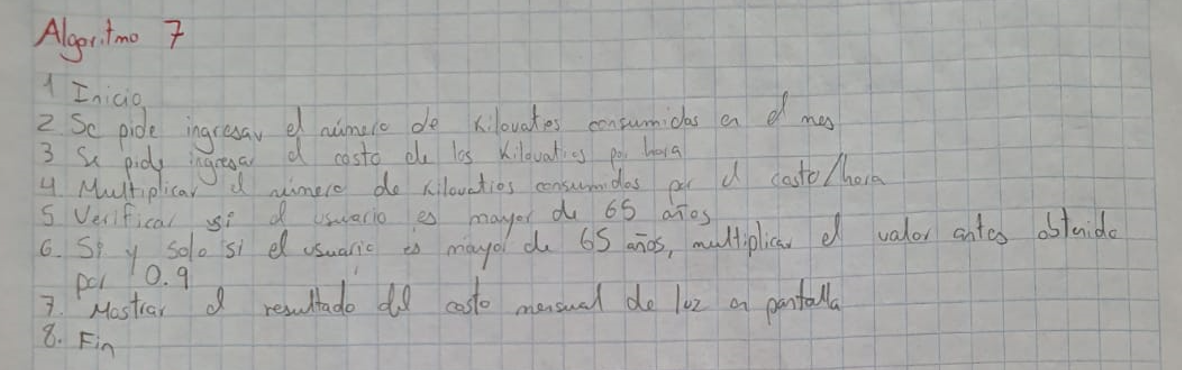 Algoritmo 7
1 Inicio
2 Se pide ingresar el número de Kilovatios consumidos en el mes
3 Se pide ingresar el costo de los Kilovatios por hora
4 Multiplicar el número de Kilovatios consumidos por el costo/hora
5 Verificar si el usuario es mayor de 65 años
6. Si y solo si el usuario es mayor de 65 años, multiplicar el valor antes obtenido
por 0.9
7. Mostrar el resultado del costo mensual de luz en pantalla
8. Fin